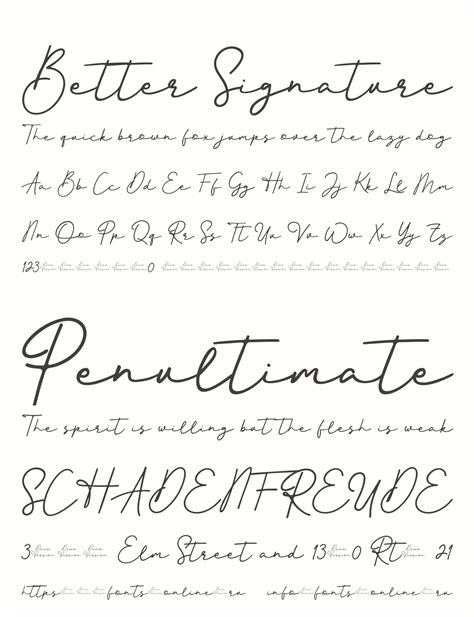 Better Signature
The quick brown fox jumps over the lazy dog
Aa Bb Cc Dd Ee Ff Gg Hh Ii Jj Kk Ll Mm
Nn Oo Pp Qq Rr Ss Tt Uu Vv Ww Xx Yy Zz
123 0
Penultimate
The spirit is willing but the flesh is weak
SCHADENFREUDE
3 Elm Street and 13 0 Rt 21
https fonts online ru info fonts online ru